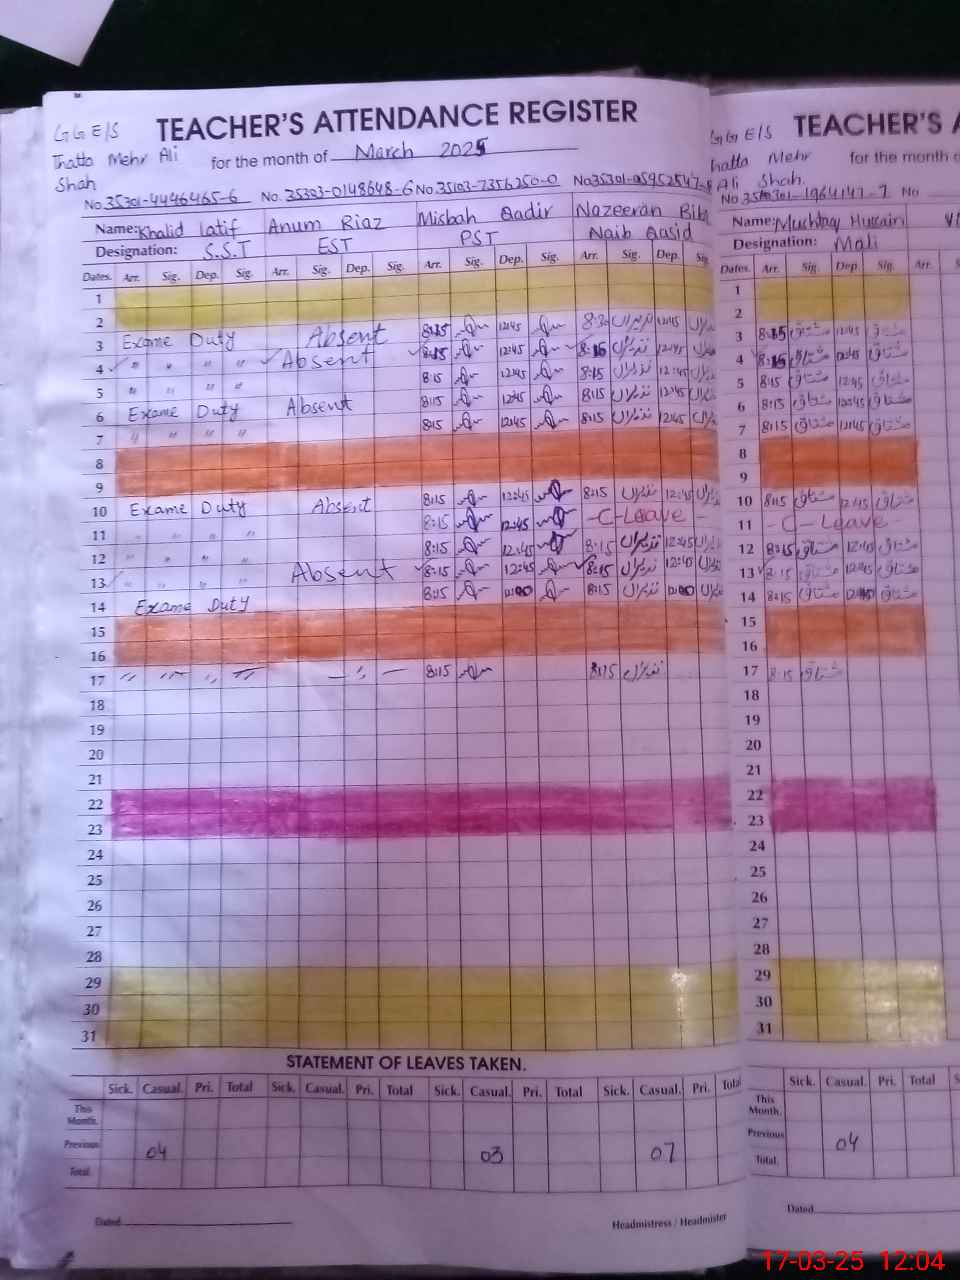 GGE/S TEACHER'S ATTENDANCE REGISTER
Thatta Mehr Ali Shah for the month of March 2025
No 35301-4446465-6 No. 35303-0148648-6 No 35103-7356250-0 No 35301-
Name: Khalid Latif Anum Riaz Misbah Qadir Nazeeran Bibi
Designation: S.S.T EST PST Naib Qasid
Dates. Arr. Sig. Dep. Sig. Arr. Sig. Dep. Sig. Arr. Sig. Dep. Sig. Arr. Sig. Dep. Sig.
1
2
3 Exame Duty Absent 8:15 12:45 8:30 نذیراں 12:45
4 " " " " Absent 8:15 12:45 8:15 نذیراں 12:45
5 " " " " 8:15 12:45 8:15 نذیراں 12:45
6 Exame Duty Absent 8:15 12:45 8:15 نذیراں 12:45
7 " " " " 8:15 12:45 8:15 نذیراں 12:45
8
9
10 Exame Duty Absent 8:15 12:45 8:15 نذیراں 12:45
11 " " " " 8:15 12:45 - C - Leave -
12 " " " " 8:15 12:45 8:15 نذیراں 12:45
13 " " " " Absent 8:15 12:45 8:15 نذیراں 12:45
14 Exame Duty 8:15 12:00 8:15 نذیراں 12:00
15
16
17 " " " " - " - 8:15 8:15 نذیراں
18
19
20
21
22
23
24
25
26
27
28
29
30
31
STATEMENT OF LEAVES TAKEN.
Sick. Casual. Pri. Total Sick. Casual. Pri. Total Sick. Casual. Pri. Total Sick. Casual. Pri. Total
This Month.
Previous 04 03 07
Total.
Dated
Headmistress / Headmister
GGE/S TEACHER'S A
Thatta Mehr Ali Shah for the month o
No 35301-1964147-9 No
Name: Mushtaq Hussain
Designation: Mali
Dates. Arr. Sig. Dep Sig. Arr.
1
2
3 8:15 مشتاق 12:45 مشتاق
4 8:15 مشتاق 12:45 مشتاق
5 8:15 مشتاق 12:45 مشتاق
6 8:15 مشتاق 12:45 مشتاق
7 8:15 مشتاق 12:45 مشتاق
8
9
10 8:15 مشتاق 12:45 مشتاق
11 - C - Leave -
12 8:15 مشتاق 12:45 مشتاق
13 8:15 مشتاق 12:45 مشتاق
14 8:15 مشتاق مشتاق
15
16
17 8:15 مشتاق
18
19
20
21
22
23
24
25
26
27
28
29
30
31
Sick. Casual. Pri. Total
This Month.
Previous 04
Total.
Dated
17-03-25 12:04